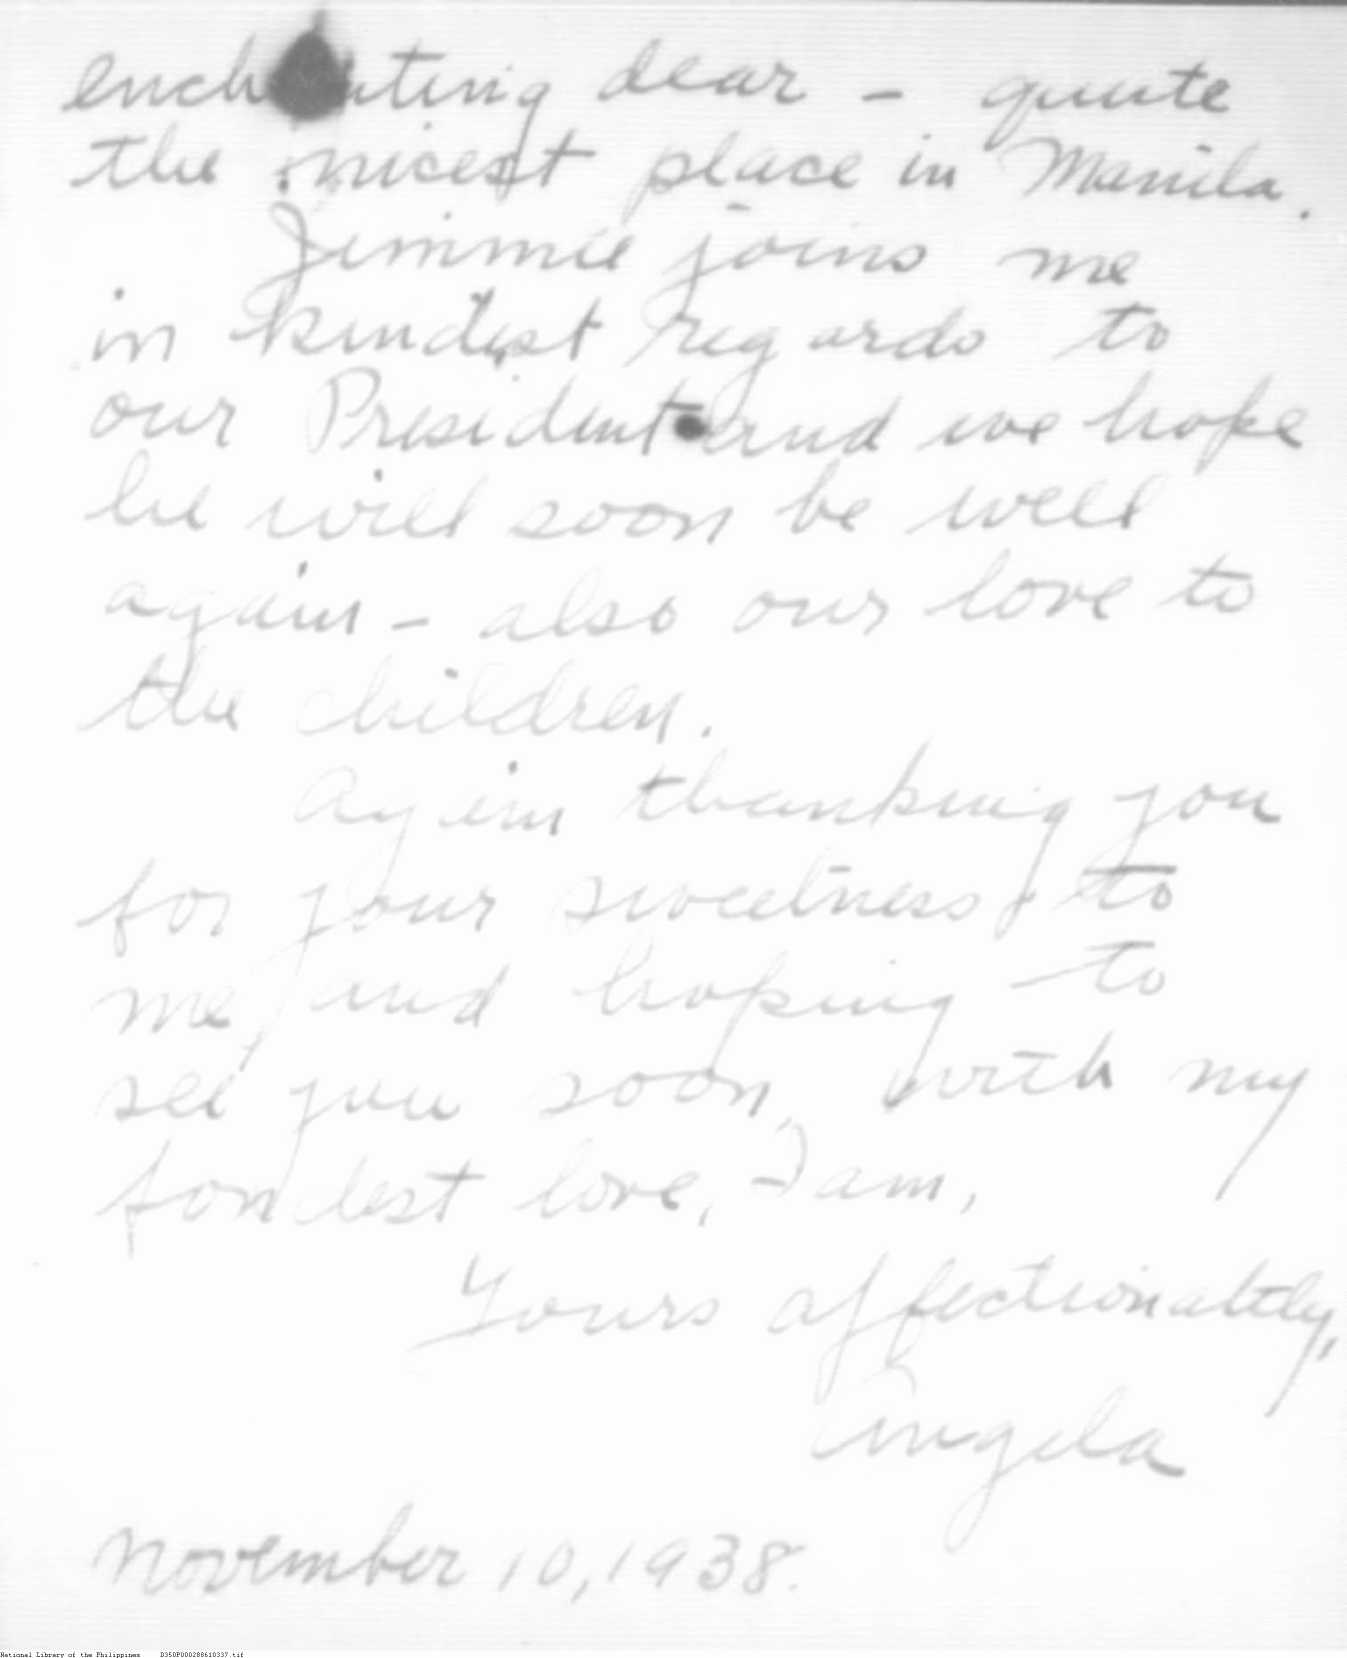 enchanting dear – quite
the nicest place in Manila.
Jimmie joins me
in kindest regards to
our President and we hope
he will soon be well
again – also our love to
the children.
Again thanking you
for your sweetness to
me, and hoping to
see you soon, with my
fondest love, I am,
Yours affectionately,
Angela
November 10, 1938.
National Library of the Philippines D350P000288610337.tif